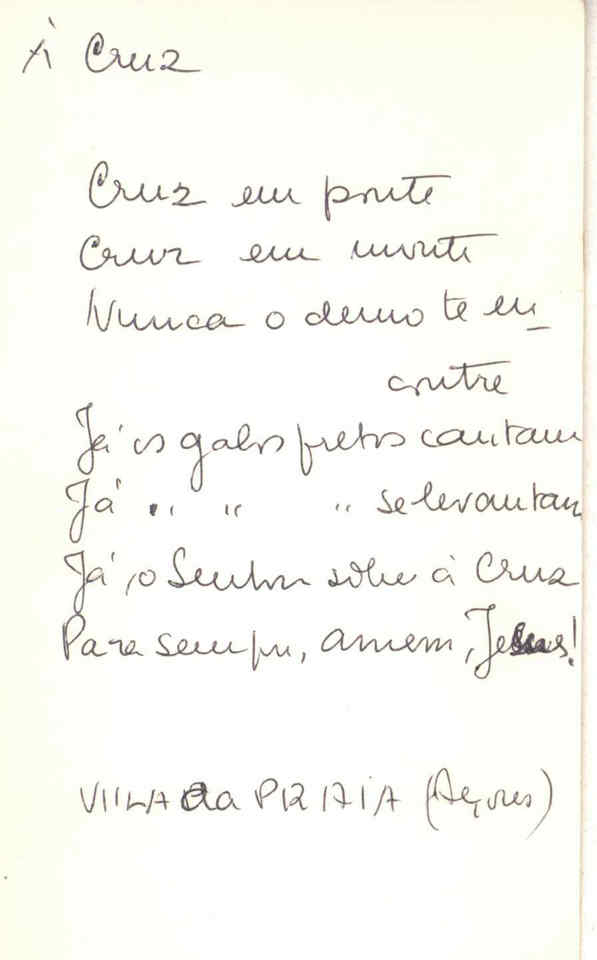 À Cruz
Cruz em ponte
Cruz em monte
Nunca o demo te en_
contre
Já os galos pretos cantam
Já " " " se levantam
Já, o Senhor sobe à Cruz
Para sempre, amem, Jesus!
VIILA da PRAIA (Açores)